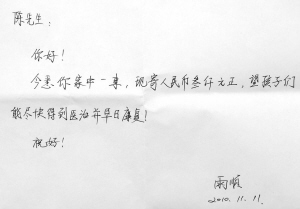 陈先生：
你好！
今悉你家中一事，现寄人民币叁仟元正，望孩子们
能尽快得到医治并早日康复！
祝好！
雨顺
2010.11.11.